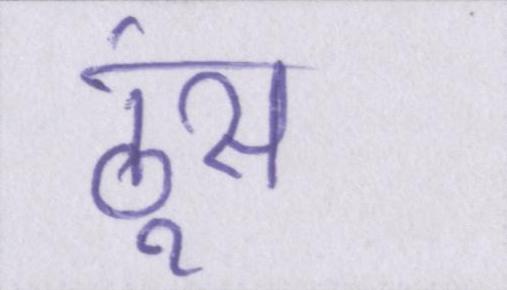 ठूंस